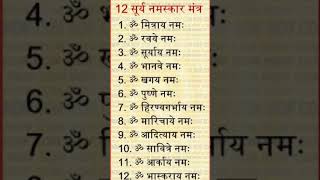 12 सूर्य नमस्कार मंत्र
1. ॐ मित्राय नमः
2. ॐ रवये नमः
3. ॐ सूर्याय नमः
4. ॐ भानवे नमः
5. ॐ खगय नमः
6. ॐ पुष्णे नमः
7. ॐ हिरण्यगर्भाय नमः
8. ॐ मारिचाये नमः
9. ॐ आदित्याय नमः
10. ॐ सावित्रे नमः
11. ॐ आर्काय नमः
12. ॐ भास्कराय नमः